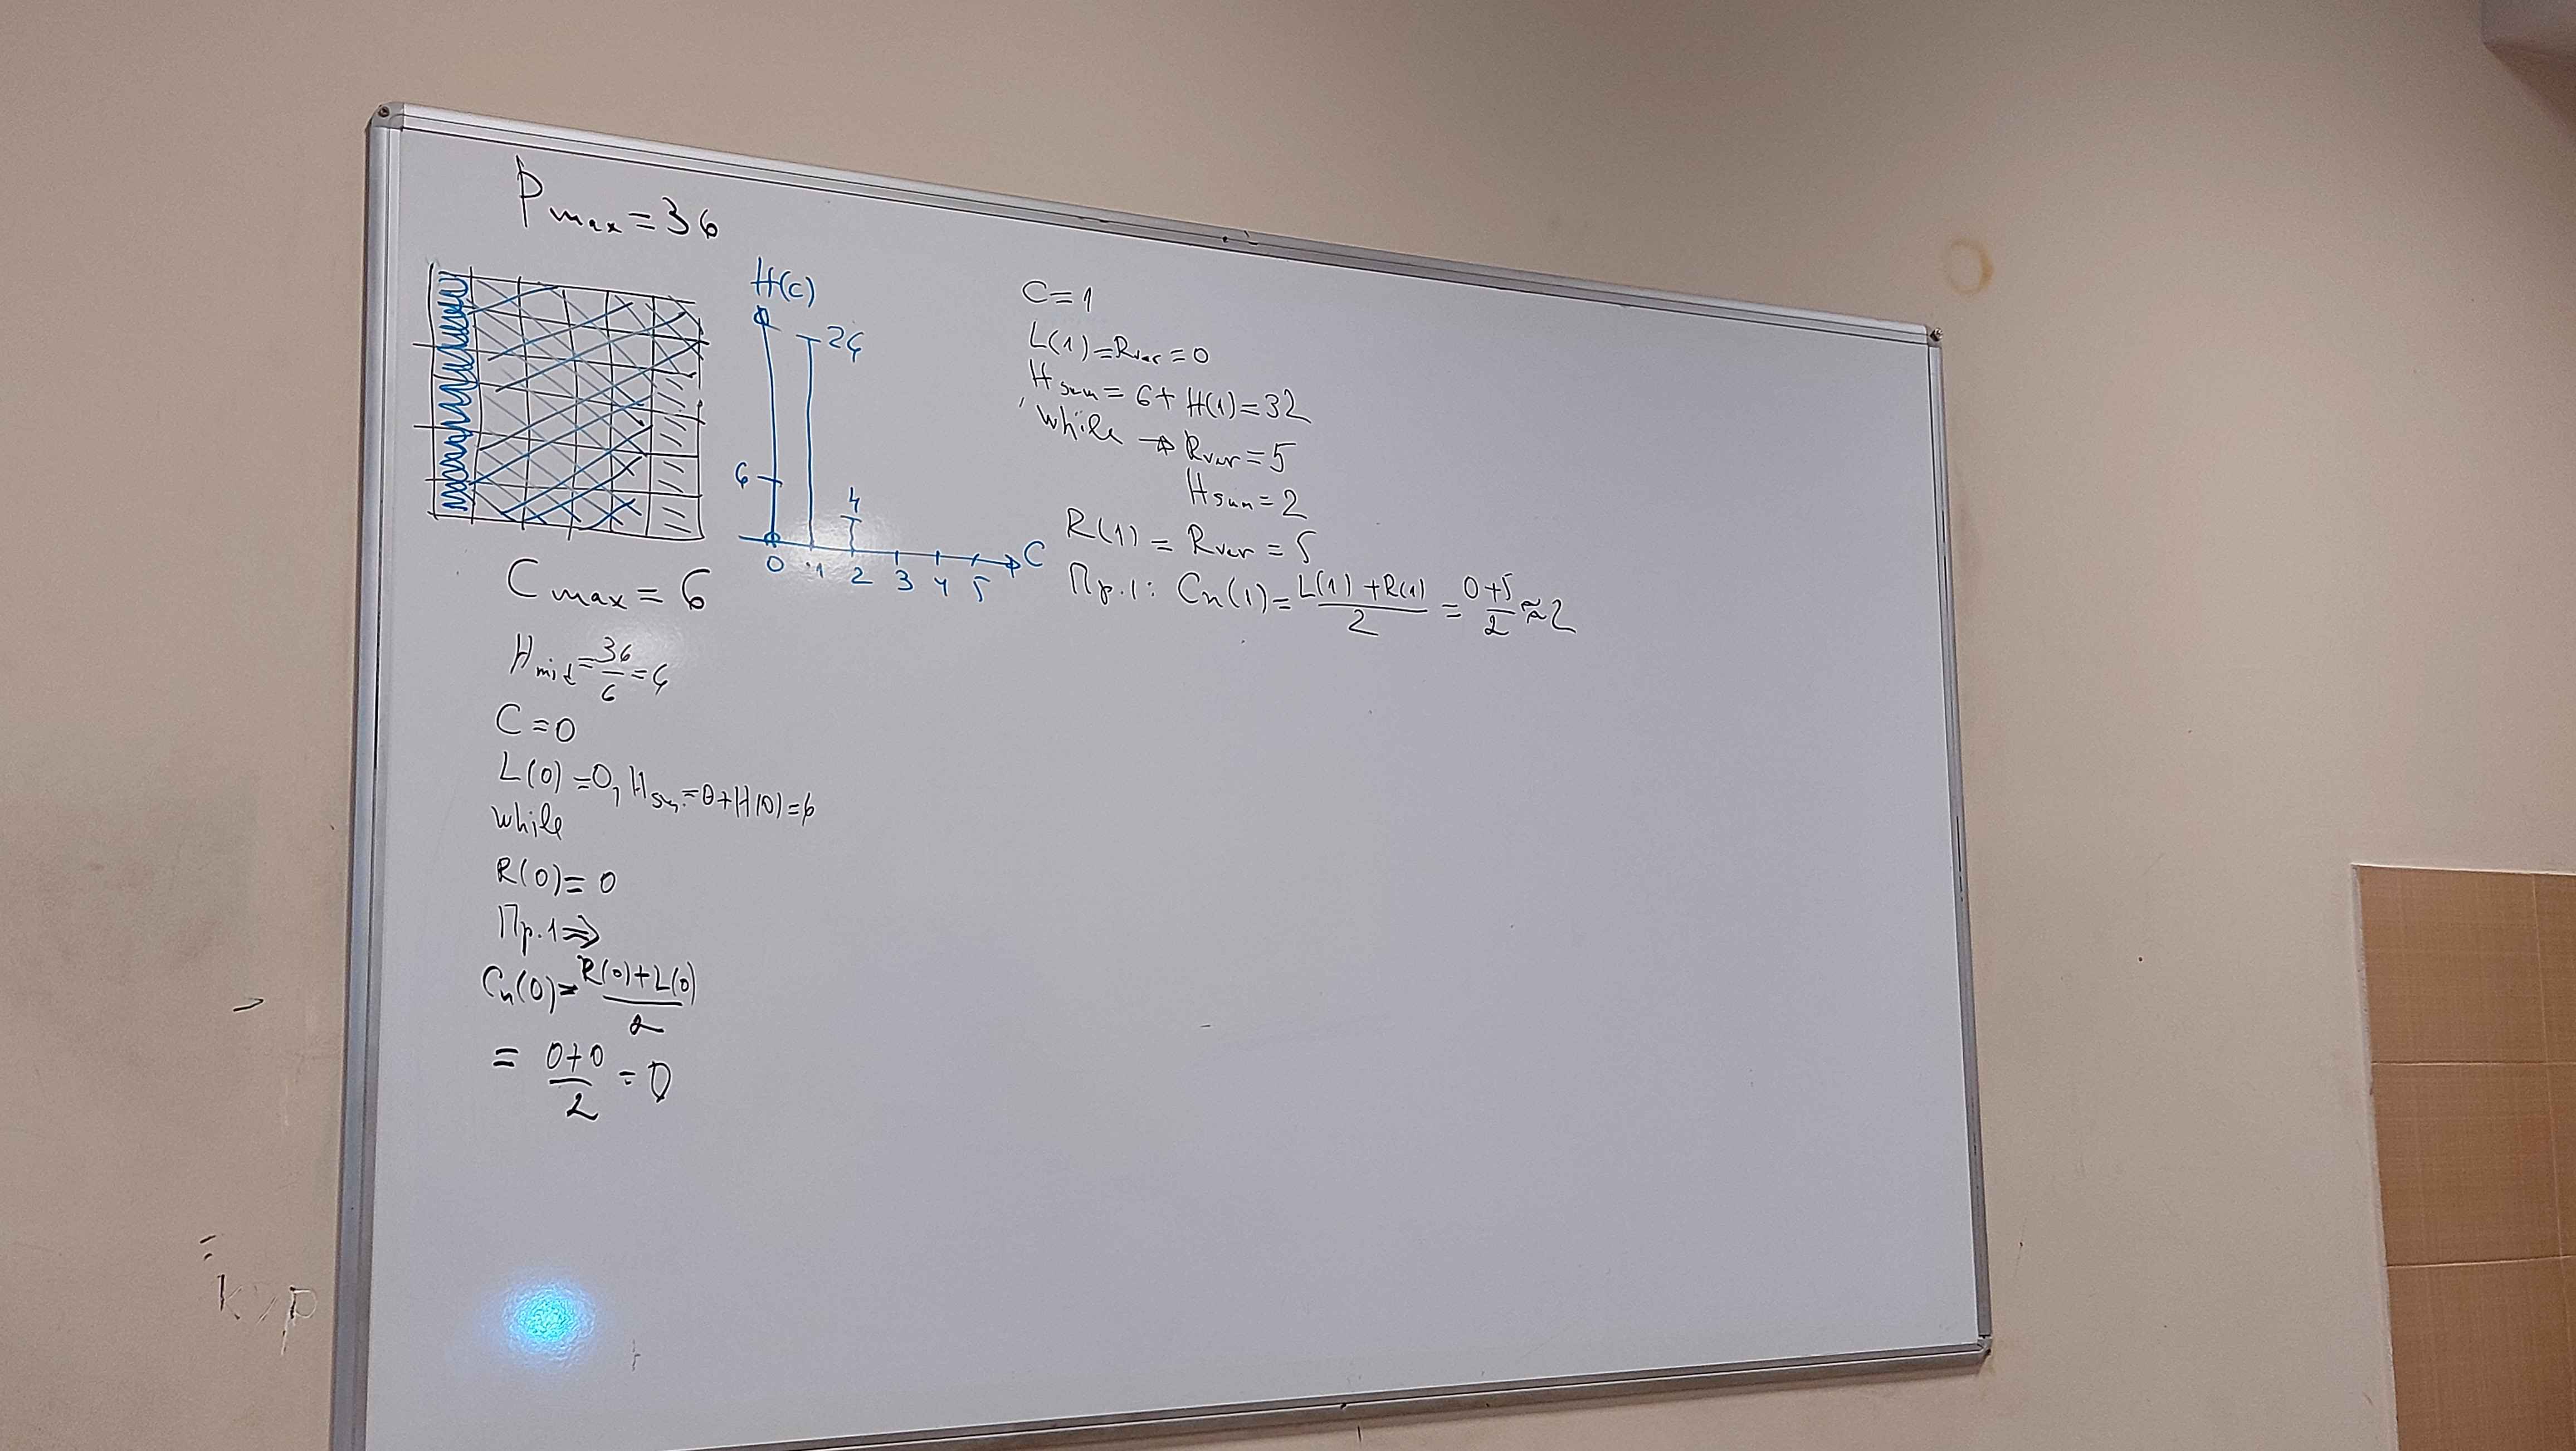 Pmax = 36
H(c)
26
6
4
0 1 2 3 4 5
C
Cmax = 6
Hmid = 36/6 = 6
C = 0
L(0) = 0, Hsum = 0 + H(0) = 6
while
R(0) = 0
Пр.1 ⇒
Cn(0) = (R(0) + L(0))/2
= (0+0)/2 = 0
C = 1
L(1) = Rver = 0
Hsum = 6 + H(1) = 32
while → Rver = 5
Hsum = 2
R(1) = Rver = 5
Пр.1: Cn(1) = (L(1) + R(1))/2 = (0+5)/2 ≈ 2